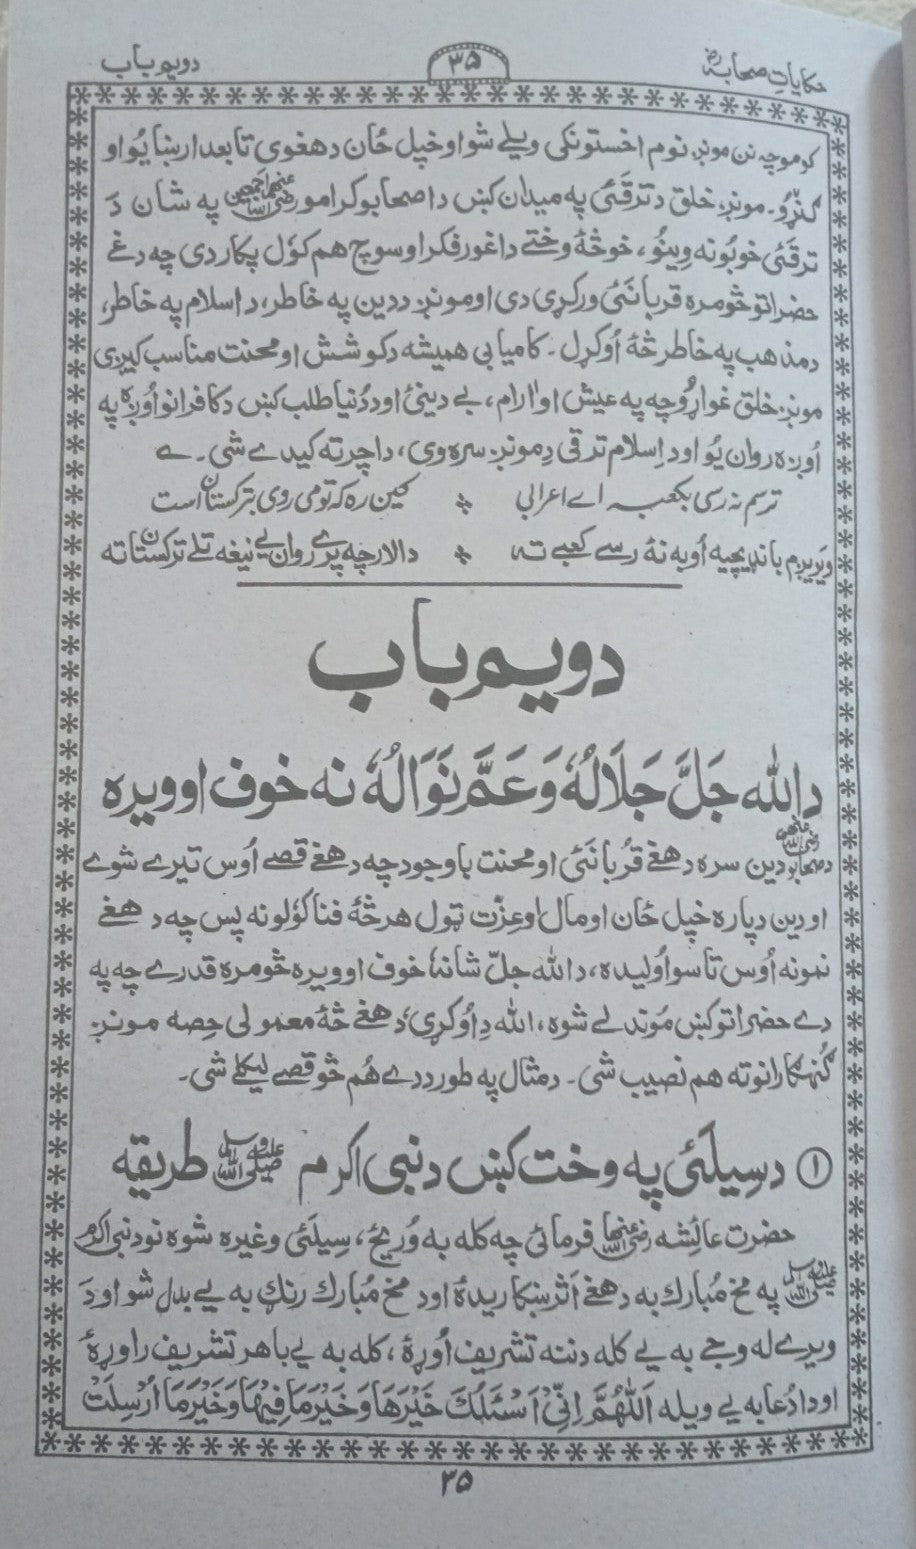 حکایاتِ صحابہؓ
۳۵
دویم باب
کومو چه نن مونږ نوم اخستونکی ویلے شو او خپل ځان دهغوی تابعدار ښایُو او
ګنړو۔ مونږ، خلق د ترقئی په میدان کښ د اصحابو کرامو رضی الله عنهم اجمعین په شان دَ
ترقئی خوبُونه وینُو، خو څهٔ وختے دا غور فکر او سوچ هم کول پکار دی چه دغے
حضراتو څومره قربانئی ورکړی دی او مونږ، د دین په خاطر، د اسلام په خاطر،
د مذهب په خاطر څهٔ اُوکړل۔ کامیابی همیشه د کوشش او محنت مناسب کیږی
مونږ، خلق غواړو چه په عیش او اٰرام، بے دینئ او د دُنیا طلب کښ د کافرانو اُوږه په
اُوږه روان یُو او د اِسلام ترقی دِ مونږ سره وی، دا چرته کیدے شی۔ ے
ترسم نه رسی بکعبه اے اعرابی ؛ کین ره که تو می روی بترکستان است
ویریږم باندیچیه اُوبه نهٔ رسے کعبے ته ؛ دا لار چه پرے روان یے نیغه تلے ترکستان ته
دویم باب
د الله جَلَّ جَلَالُهٗ وَعَمَّ نَوَالُهٗ نه خوف او ویره
د صحابو رضی الله عنهم دین سره دهغے قُربانئی او محنت باوجود چه دهغے قصے اُوس تیرے شوے
او دین دپاره خپل ځان او مال او عِزّت ټول هر څهٔ فنا کؤلو نه پس چه دهغے
نمونه اُوس تاسو اُولیده، د الله جلّ شانهٗ خوف او ویره څومره قدرے چه په
دے حضراتو کښ مُوندلے شوه، الله دِ اُوکړی دَهغے څهٔ معمولی حِصه مونږ
ګنهګارانو ته هم نصیب شی۔ د مثال په طور دے هُم څو قصے لیکلے شی۔
① د سِیلَئ په وخت کښ د نبی اکرم صلی الله علیه وسلم طریقه
حضرت عائشه رضی الله عنها فرمائی چه کله به وُریځ، سِیلَئ وغیره شوه نو د نبی اکرم
صلی الله علیه وسلم په مخ مُبارك به دهغے اثر ښکاریدهٔ او د مخ مُبارك رنګ به یے بدل شو او دَ
ویرے له وجے به یے کله دننه تشریف اُوړهٔ، کله به یے باهر تشریف راوړهٔ
او دا دُعا به یے ویله اَللّٰهُمَّ اِنِّیْ اَسْئَلُكَ خَیْرَهَا وَخَیْرَ مَا فِیْهَا وَخَیْرَ مَا اُرْسِلَتْ
۳۵